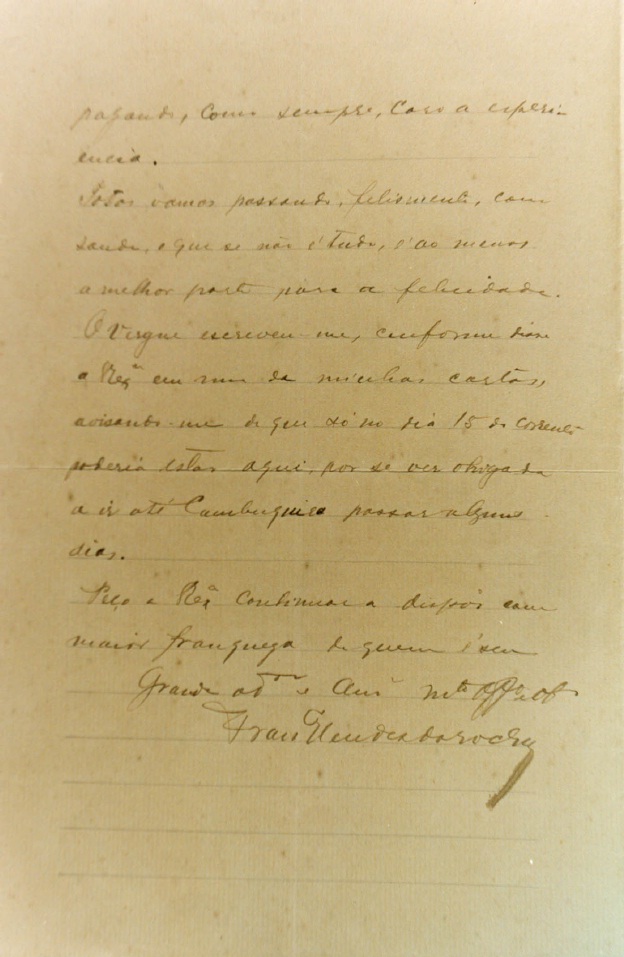 pagando, como sempre, caro a experi-
encia.
Todos vamos passando, felismente, com
saude, o que se não é tudo, é ao menos
a melhor parte para a felicidade.
O Vergne escreveu-me, conforme disse
a Rex.ª em uma de minhas cartas,
avisando-me de que só no dia 15 do corrente
poderia estar aqui, por se ver obrigado
a ir até Cambuquira passar alguns
dias.
Peço a Rex.ª continuar a dispôr com
maior franqueza de quem é seu
Grande ad.or e Am.º m.to
Fran.co Mendes da Rocha